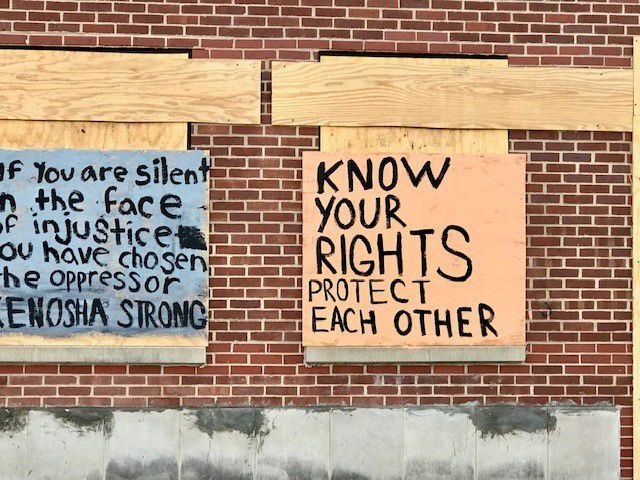 IF You are silent
n the face
of injustice
ou have chosen
he oppressor
KENOSHA STRONG
KNOW
YOUR
RIGHTS
PROTECT
EACH OTHER